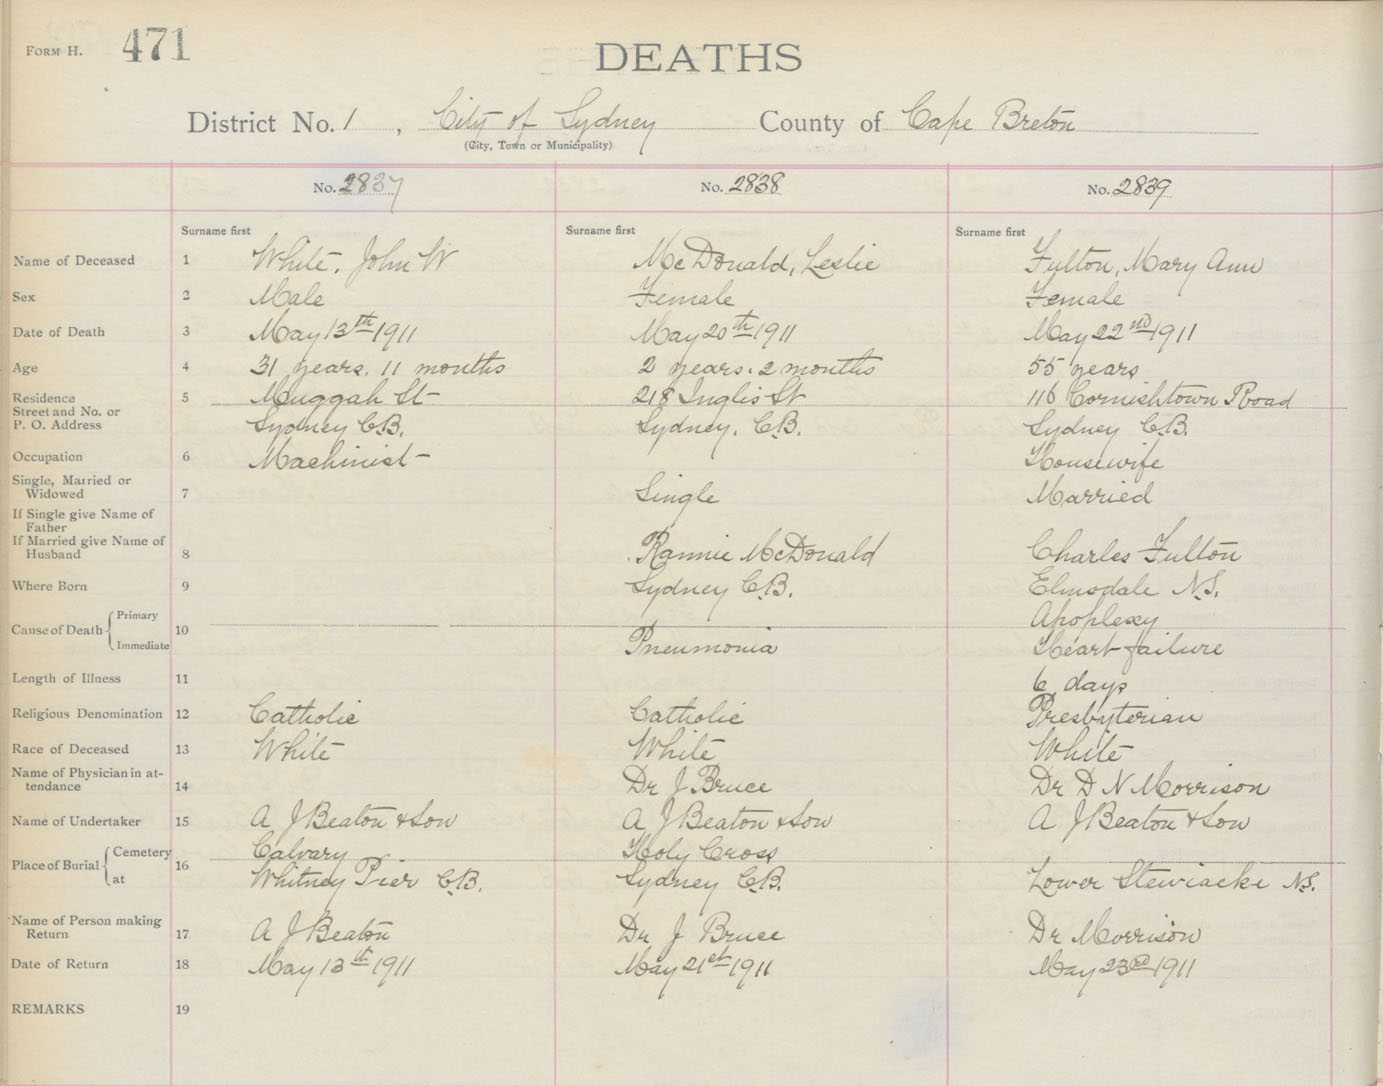 FORM H. 471
DEATHS
District No. 1, City of Sydney County of Cape Breton
(City, Town or Municipality)
No. 2837 No. 2838 No. 2839
Surname first Surname first Surname first
Name of Deceased 1 White, John W McDonald, Leslie Fulton, Mary Ann
Sex 2 Male Female Female
Date of Death 3 May 13th 1911 May 20th 1911 May 22nd 1911
Age 4 31 years. 11 months 2 years. 2 months 55 years
Residence 5 Muggah St 218 Inglis St 116 Cornishtown Road
Street and No. or
P. O. Address Sydney C.B. Sydney. C.B. Sydney C.B.
Occupation 6 Machinist Housewife
Single, Married or
Widowed 7 Single Married
If Single give Name of
Father
If Married give Name of
Husband 8 Rannie McDonald Charles Fulton
Where Born 9 Sydney C.B. Elmsdale N.S.
Cause of Death Primary 10 Apoplexy
Immediate Pneumonia Heart failure
Length of Illness 11 6 days
Religious Denomination 12 Catholic Catholic Presbyterian
Race of Deceased 13 White White White
Name of Physician in at-
tendance 14 Dr J Bruce Dr D N Morrison
Name of Undertaker 15 A J Beaton & Son A J Beaton & Son A J Beaton & Son
Place of Burial Cemetery 16 Calvary Holy Cross
at Whitney Pier C.B. Sydney C.B. Lower Stewiacke N.S.
Name of Person making
Return 17 A J Beaton Dr J Bruce Dr Morrison
Date of Return 18 May 13th 1911 May 21st 1911 May 23rd 1911
REMARKS 19